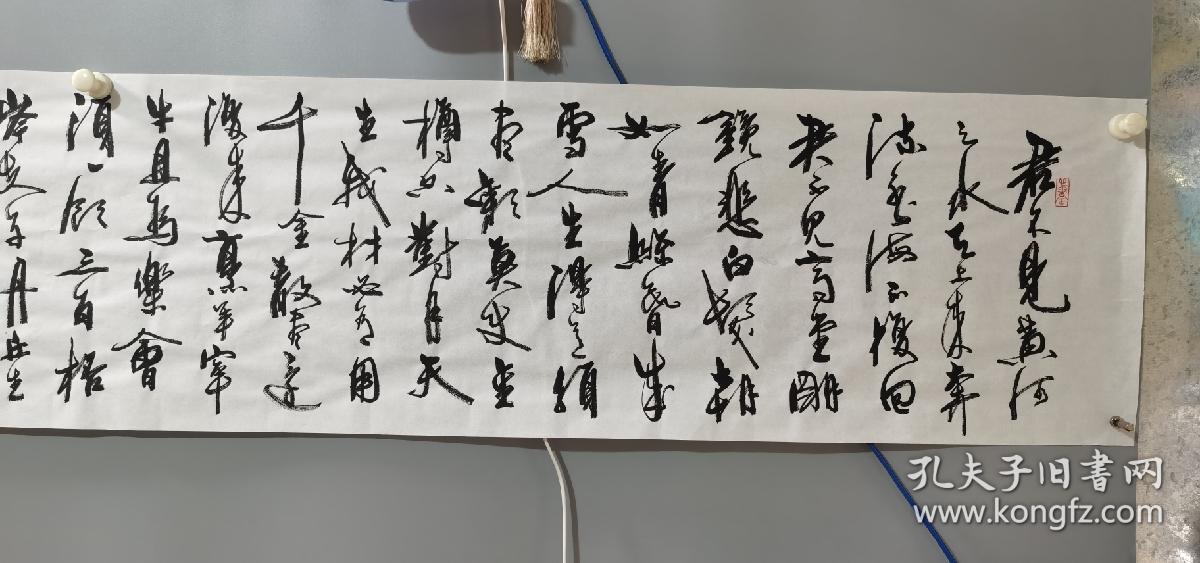 君不見黄河
之水天上来奔
流至海不復回
君不見高堂明
鏡悲白髮朝
如青絲暮成
雪人生得意須
盡歡莫使金
樽空對月天
生我材必有用
千金散盡還
復来烹羊宰
牛且為樂會
須一飲三百杯
岑夫子丹丘生
孔夫子旧书网
www.kongfz.com